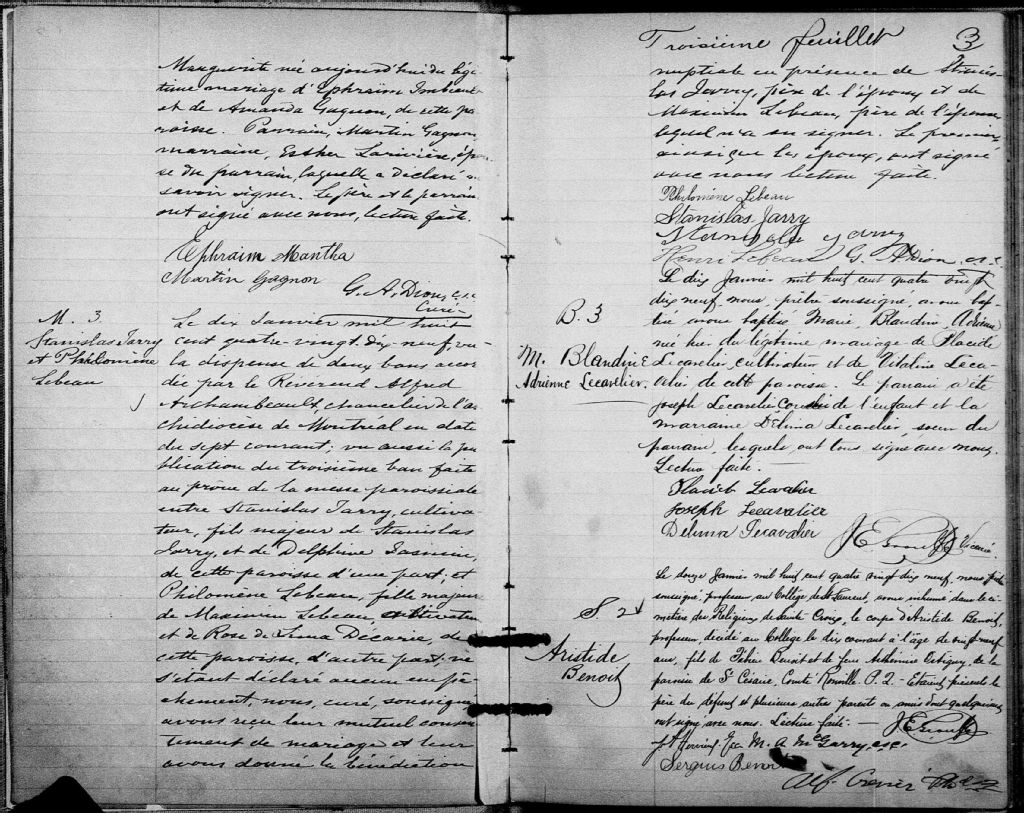 Marguerite née aujourd'hui du légi-
time mariage d'Ephraim
et de Amanda Gagnon, de cette pa-
roisse. Parrain, Martin Gagnon
marraine, Esther Larivière, épou-
se du parrain, laquelle a déclaré ne
savoir signer. Le père et le parrain
ont signé avec nous, lecture faite.
Ephraim Mantha
Martin Gagnon
G. A. Dion, c.s.c.
Curé
M. 3
Stanislas Jarry
et Philomène
Lebeau
Le dix Janvier mil huit
cent quatre-vingt-dix-neuf, vu
la dispense de deux bans accor
dée par le Révérend Alfred
Archambeault, chancelier de l'ar
chidiocèse de Montréal en date
du sept courant; vu aussi la pu
blication du troisième ban faite
au prône de la messe paroissiale
entre Stanislas Jarry, cultiva-
teur, fils majeur de Stanislas
Jarry, et de Delphine Jasmin,
de cette paroisse d'une part; et
Philomène Lebeau, fille majeure
de Maximin Lebeau, cultivateur
et de Rose de Lima Décarie, de
cette paroisse, d'autre part; ne
s'étant déclaré aucun empê-
chement, nous, curé, soussigné
avons reçu leur mutuel consen
tement de mariage et leur
avons donné la bénédiction
Troisième feuillet 3
nuptiale en présence de Stanis-
las Jarry, père de l'époux et de
Maximin Lebeau, père de l'épouse
lequel n'a su signer. Le premier
ainsi que les époux, ont signé
avec nous lecture faite.
Philomène Lebeau
Stanislas Jarry
Stanislas Jarry
Henri Lebeau G. A. Dion, c.s.c.
B. 3
M. Blandine
Adrienne Lecavelier
Le dix Janvier mil huit cent quatre vingt
dix neuf nous, prêtre soussigné, avons bap-
tisé avons baptisé Marie, Blandine, Adrienne
née hier du légitime mariage de Placide
Lecavelier, cultivateur et de Vitaline Leca-
velier de cette paroisse. Le parrain a été
Joseph Lecavelier cousin de l'enfant et la
marraine Délima Lecavelier, soeur du
parrain, lesquels ont tous signé avec nous.
Lecture faite.
Placide Lecavalier
Joseph Lecavalier
Délima Lecavalier
Vicaire
S. 2
Aristide
Benoit
Le douze Janvier mil huit cent quatre vingt dix neuf, nous prêtre
soussigné, professeur, au Collège de St Laurent, avons inhumé, dans le ci-
metière des Religieux de Sainte Croix, le corps d'Aristide Benoit,
professeur décédé au Collège le dix courant à l'âge de vingt neuf
ans, fils de Benoit et de feue Arthémise, de la
paroisse de St Césaire, Comté Rouville. P.Q. - Etaient présents le
père du défunt et plusieurs autres parents ou amis dont quelques-uns
ont signé avec nous. Lecture faite. -
M. A. McGarry, csc.
Sergius Benoit
Alf. Crevier